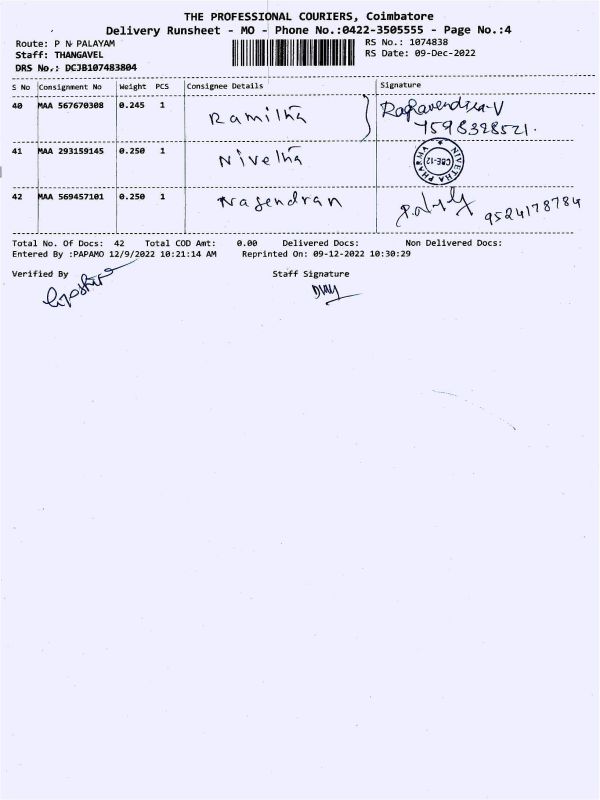 THE PROFESSIONAL COURIERS, Coimbatore
Delivery Runsheet - MO - Phone No.:0422-3505555 - Page No.:4
Route: P N PALAYAM RS No.: 1074838
Staff: THANGAVEL RS Date: 09-Dec-2022
DRS No.: DCJB107483804
S No Consignment No Weight PCS Consignee Details Signature
40 MAA 567670308 0.245 1 Ramilha Ragavendra.V
7598328521.
41 MAA 293159145 0.250 1 Nivelha NIVETHA PHARMA CBE-12
42 MAA 569457101 0.250 1 Nagendran 9524178784
Total No. Of Docs: 42 Total COD Amt: 0.00 Delivered Docs: Non Delivered Docs:
Entered By :PAPAMO 12/9/2022 10:21:14 AM Reprinted On: 09-12-2022 10:30:29
Verified By Staff Signature